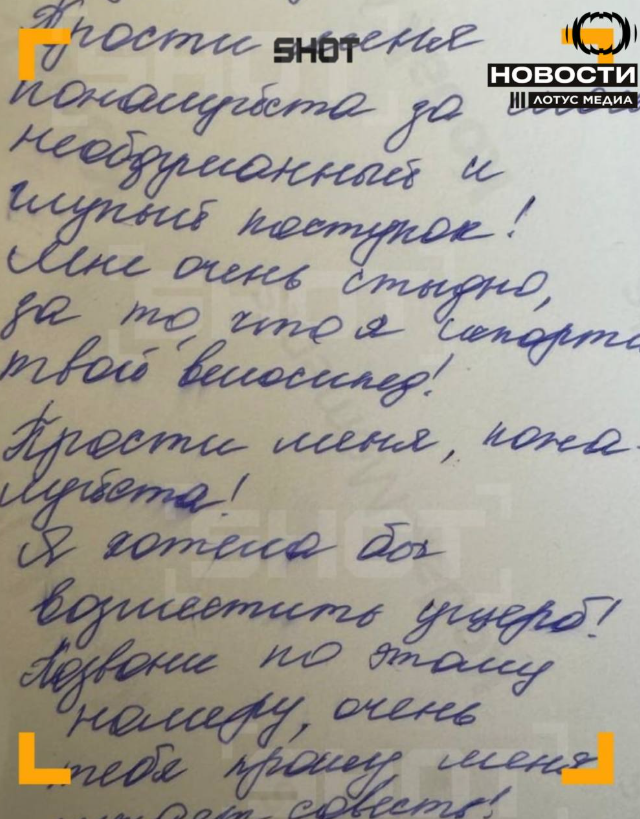 Прости меня
SHOT
НОВОСТИ
ЛОТУС МЕДИА
пожалуйста за
необдуманный и
глупый поступок!
Мне очень стыдно,
за то, что я испорти
твой велосипед!
Прости меня, пожа-
луйста!
Я хотела бы
возместить ущерб!
Позвони по этому
номеру, очень
тебя прошу меня
совесть!